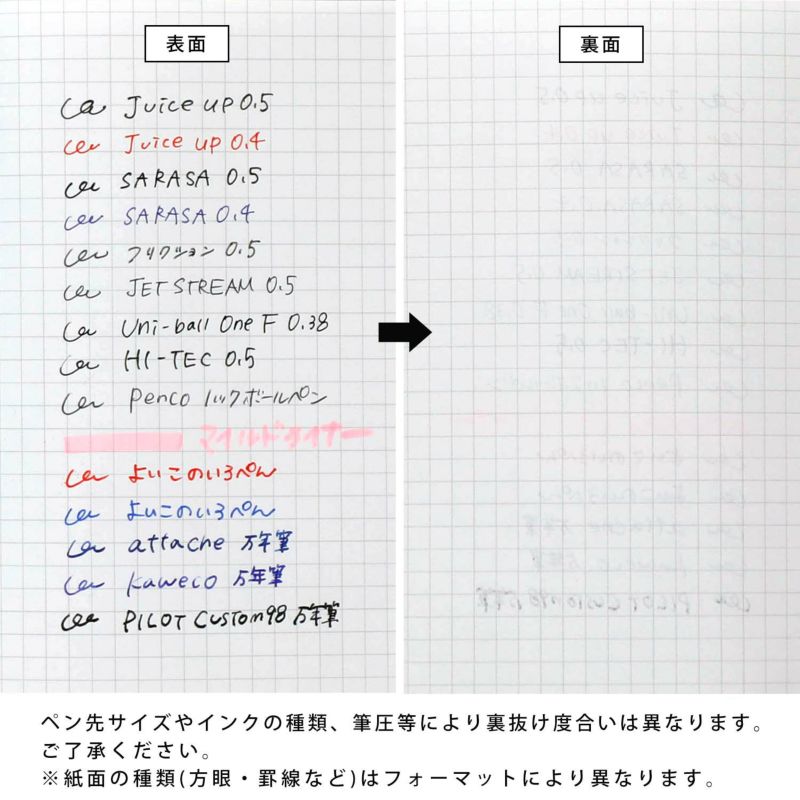 表面
Ca Juice up 0.5
Ca Juice up 0.4
Ca SARASA 0.5
Ca SARASA 0.4
Ca フリクション 0.5
Ca JETSTREAM 0.5
Ca Uni-ball One F 0.38
Ca HI-TEC 0.5
Ca Penco ノックボールペン
マイルドライナー
Ca よいこのいろぺん
Ca よいこのいろぺん
Ca attache 万年筆
Ca kaweco 万年筆
Ca PILOT Custom98 万年筆
裏面
ペン先サイズやインクの種類、筆圧等により裏抜け度合いは異なります。
ご了承ください。
※紙面の種類(方眼・罫線など)はフォーマットにより異なります。